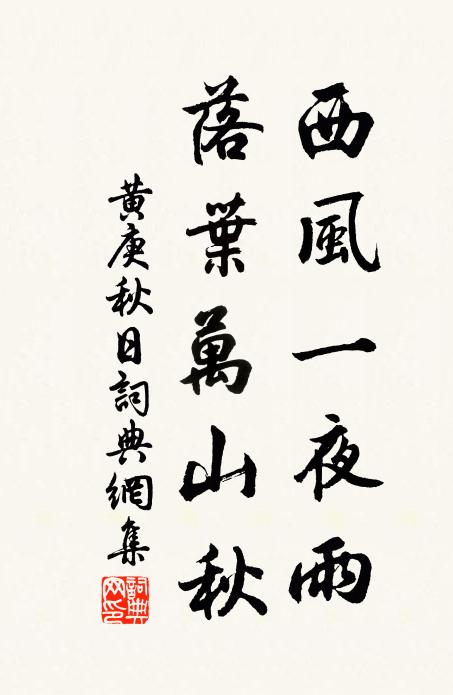 西風一夜雨
落葉萬山秋
黄庚秋日詞典網集
詞典
网印